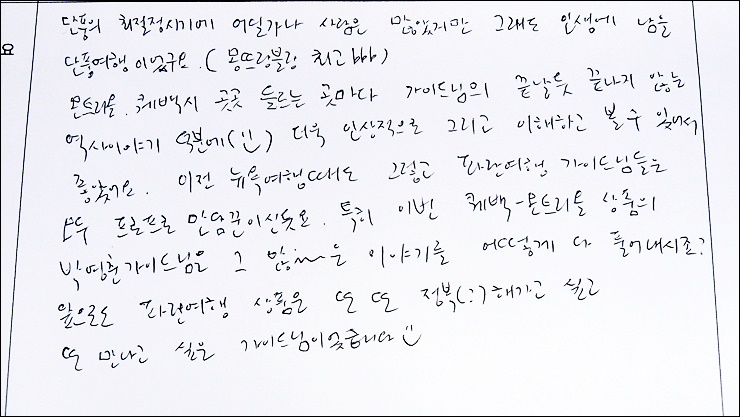 단풍의 최절정시기에 어딜가나 사람은 많았지만 그래도 인생에 남을
단풍여행이었구요. (몽뜨랑블랑 최고bbb)
요
몬트리올. 퀘백시 곳곳 들르는 곳마다 가이드님의 끝날듯 끝나지 않는
역사이야기 덕분에(!!) 더욱 인상적으로 그리고 이해하고 볼 수 있어서
좋았어요. 이전 뉴욕여행때도 그렇고 파란여행 가이드님들은
모두 프로프로 만담꾼이신듯요. 특히 이번 퀘백-몬트리올 상품의
박영훈가이드님은 그 많~은 이야기를 어떻게 다 풀어내시죠?
앞으로도 파란여행 상품은 또 또 정복(:)해가고 싶고
또 만나고 싶은 가이드님이었습니다